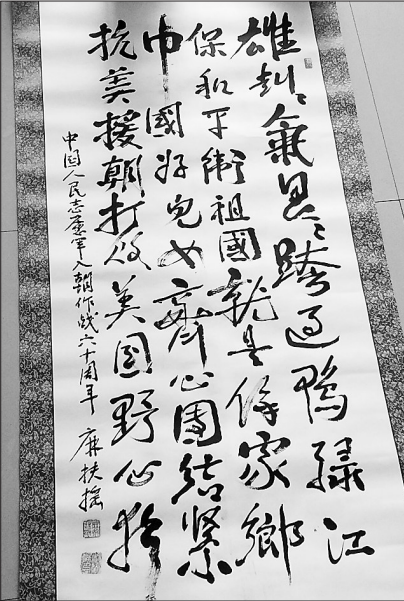 雄赳々氣昂々跨过鸭绿江
保和平衛祖國就是保家鄉
中國好兒女齊心團结緊
抗美援朝打败美国野心狼
中国人民志愿军入朝作战六十周年 麻扶摇